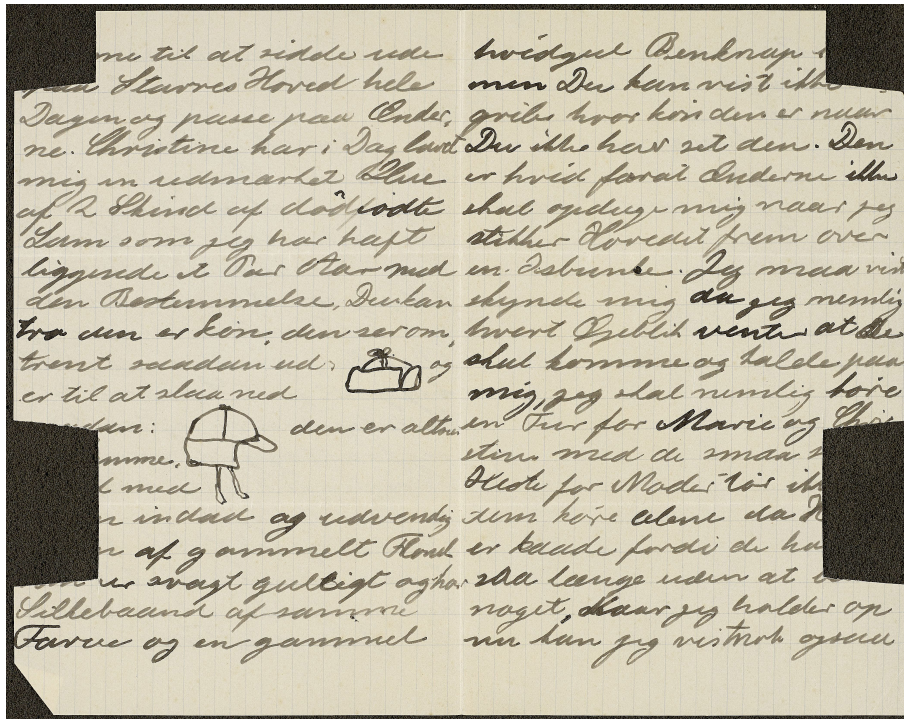 me til at sidde ude
paa Stavres Hoved hele
Dagen og passe paa Ænder,
ne. Christine har i Dag lavet
mig en udmærket Hue
af 2 Skind af dødfødte
Lam som jeg har haft
liggende et Par Aar med
den Bestemmelse, Du kan
tro den er køn, den ser om,
trent saadan ud: og
er til at slaa ned
den er altsaa
med
indad og udvendig
af gammelt Flonel
er svagt gulligt og har
Silkebaand af samme
Farve og en gammel
hvidgul Benknap
men Du kan vist ikke
gribe hvor køn den er naar
Du ikke har set den. Den
er hvid forat Ænderne ikke
skal opdage mig naar jeg
stikker Hovedet frem over
en Isbunke. Jeg maa vist
skynde mig da jeg nemlig
hvert Øjeblik venter at De
skal komme og kalde paa
mig, jeg skal nemlig køre
en Tur for Marie og Chri
stine med de smaa
Heste for Moder tør ikke
dem køre alene da
er kaade fordi de ha
staa længe uden at
noget, Naar jeg holder op
nu kan jeg vistnok ogsaa